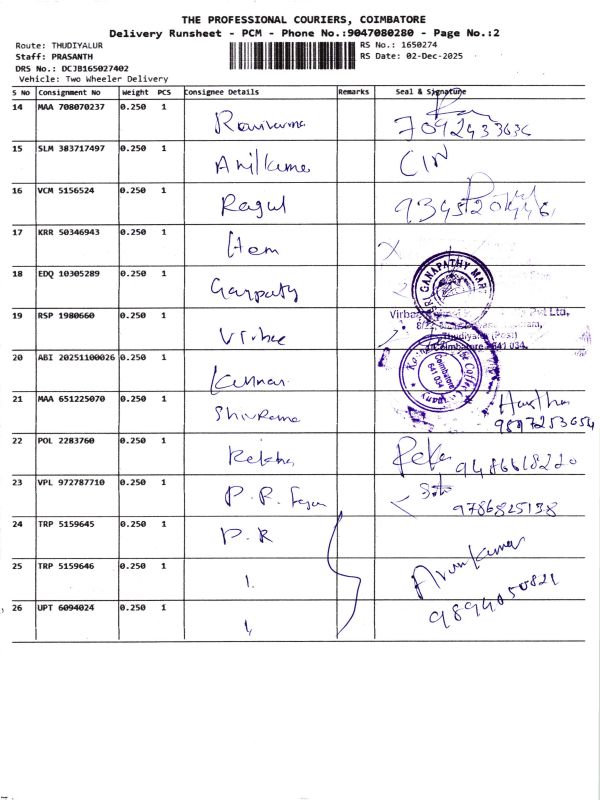 THE PROFESSIONAL COURIERS, COIMBATORE
Delivery Runsheet - PCM - Phone No.:9047080280 - Page No.:2
Route: THUDIYALUR
RS No.: 1650274
Staff: PRASANTH
RS Date: 02-Dec-2025
DRS No.: DCJB165027402
Vehicle: Two Wheeler Delivery
S No Consignment No Weight PCS Consignee Details Remarks Seal & Signature
14 MAA 708070237 0.250 1
15 SLM 383717497 0.250 1 Anilkumar CIN
16 VCM 5156524 0.250 1 Ragul
17 KRR 50346943 0.250 1 Hem X
18 EDQ 10305289 0.250 1 Ganpaty
GANAPATHY
19 RSP 1980660 0.250 1 Virbac
Pvt Ltd,
Thudiyalur (Post)
Coimbatore - 641 034.
20 ABI 20251100026 0.250 1 Kannan
The Coffee Company
Coimbatore
641 034
21 MAA 651225070 0.250 1 Shivrama
22 POL 2283760 0.250 1 Rekha Reka 9486618220
23 VPL 972787710 0.250 1 P.R. 9786825138
24 TRP 5159645 0.250 1 P.R
25 TRP 5159646 0.250 1 Arunkumar
26 UPT 6094024 0.250 1 9894050821